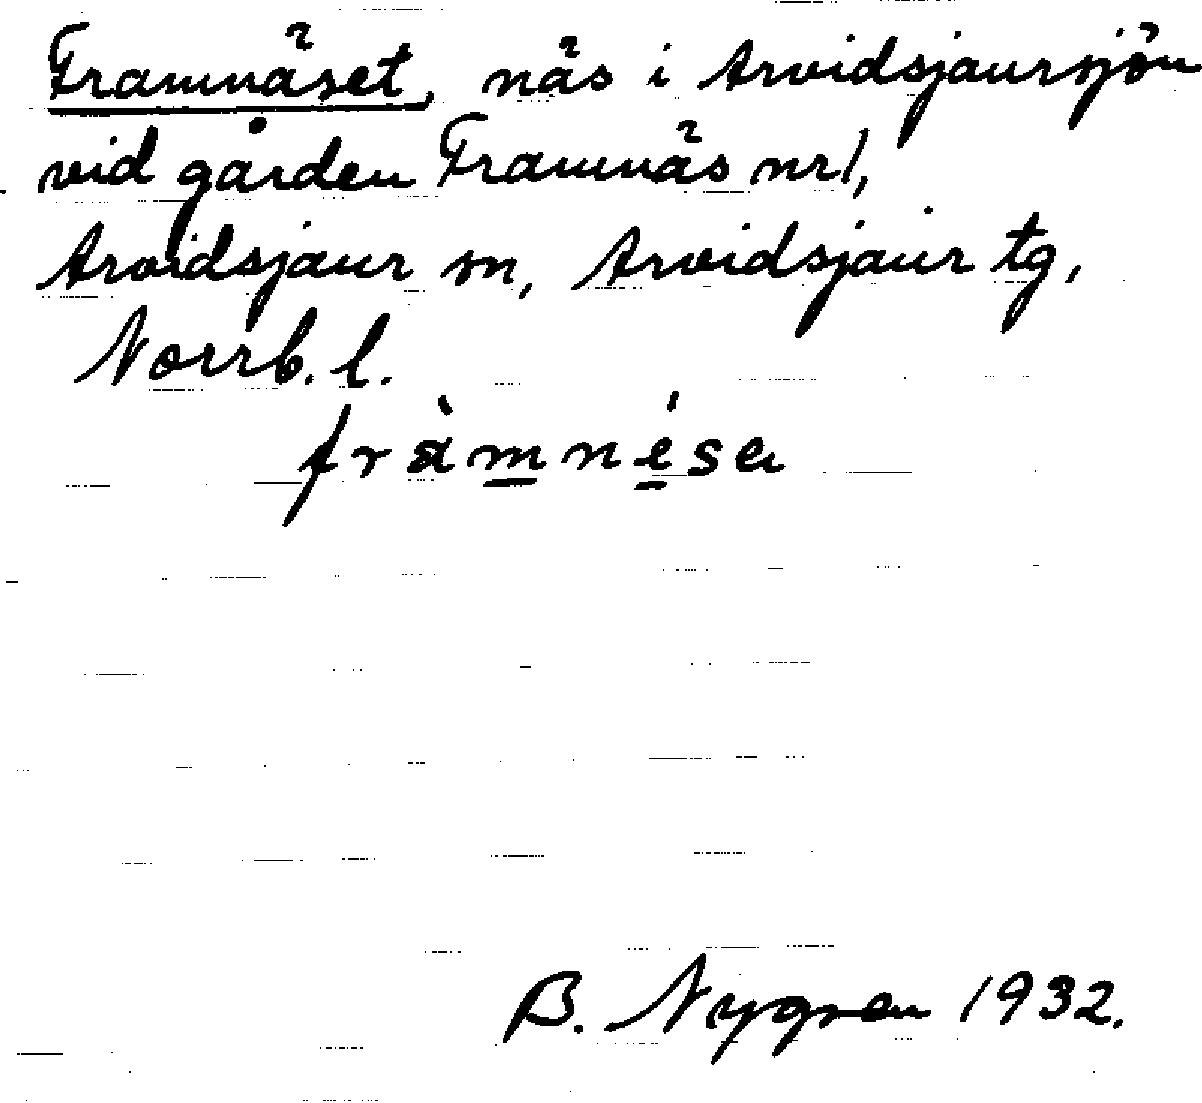 Framnäset, näs i Arvidsjaursjön
vid gården Framnäs nr 1,
Arvidsjaur sn, Arvidsjaur tg,
Norrb. l.
fràmnésa
B. Nygren 1932.